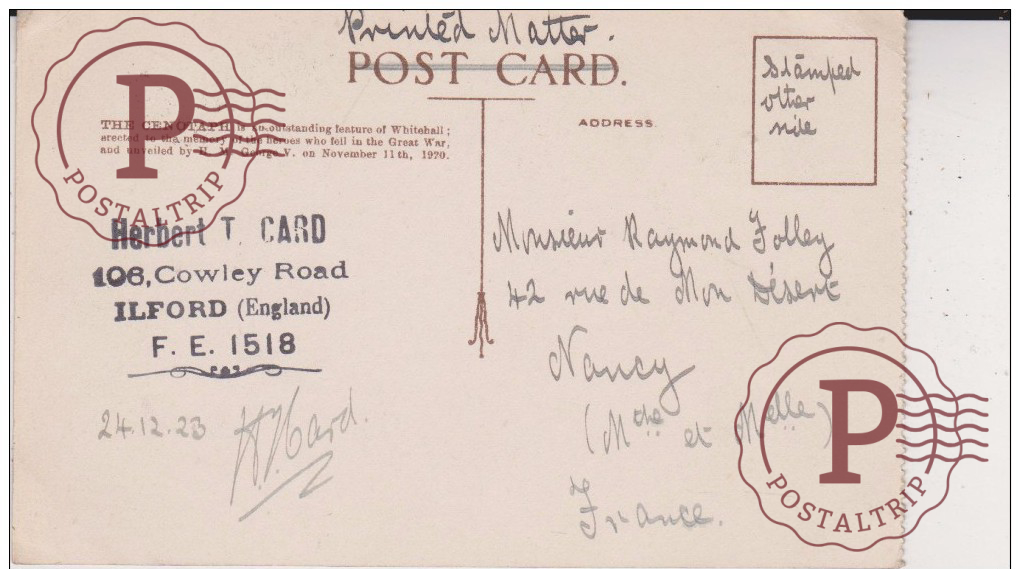 Printed Matter.
POST CARD.
Stamped
other
side
THE CENOTAPH is an outstanding feature of Whitehall;
erected to the memory of the heroes who fell in the Great War,
and unveiled by H. M. George V. on November 11th, 1920.
ADDRESS.
P
POSTALTRIP
Herbert T. CARD
106, Cowley Road
ILFORD (England)
F. E. 1518
24.12.23 H.T. Card.
Monsieur Raymond Folley
42 rue de Mon Désert
Nancy
(Mme et Melle)
France.
P
POSTALTRIP